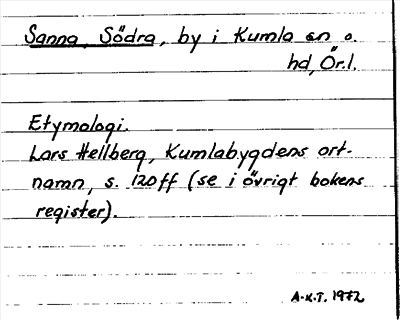 Sanna, Södra, by i Kumla sn o.
hd, Ör.l.
Etymologi.
Lars Hellberg, Kumlabygdens ort-
namn, s. 120 ff (se i övrigt bokens
register).
A.K.T. 1972